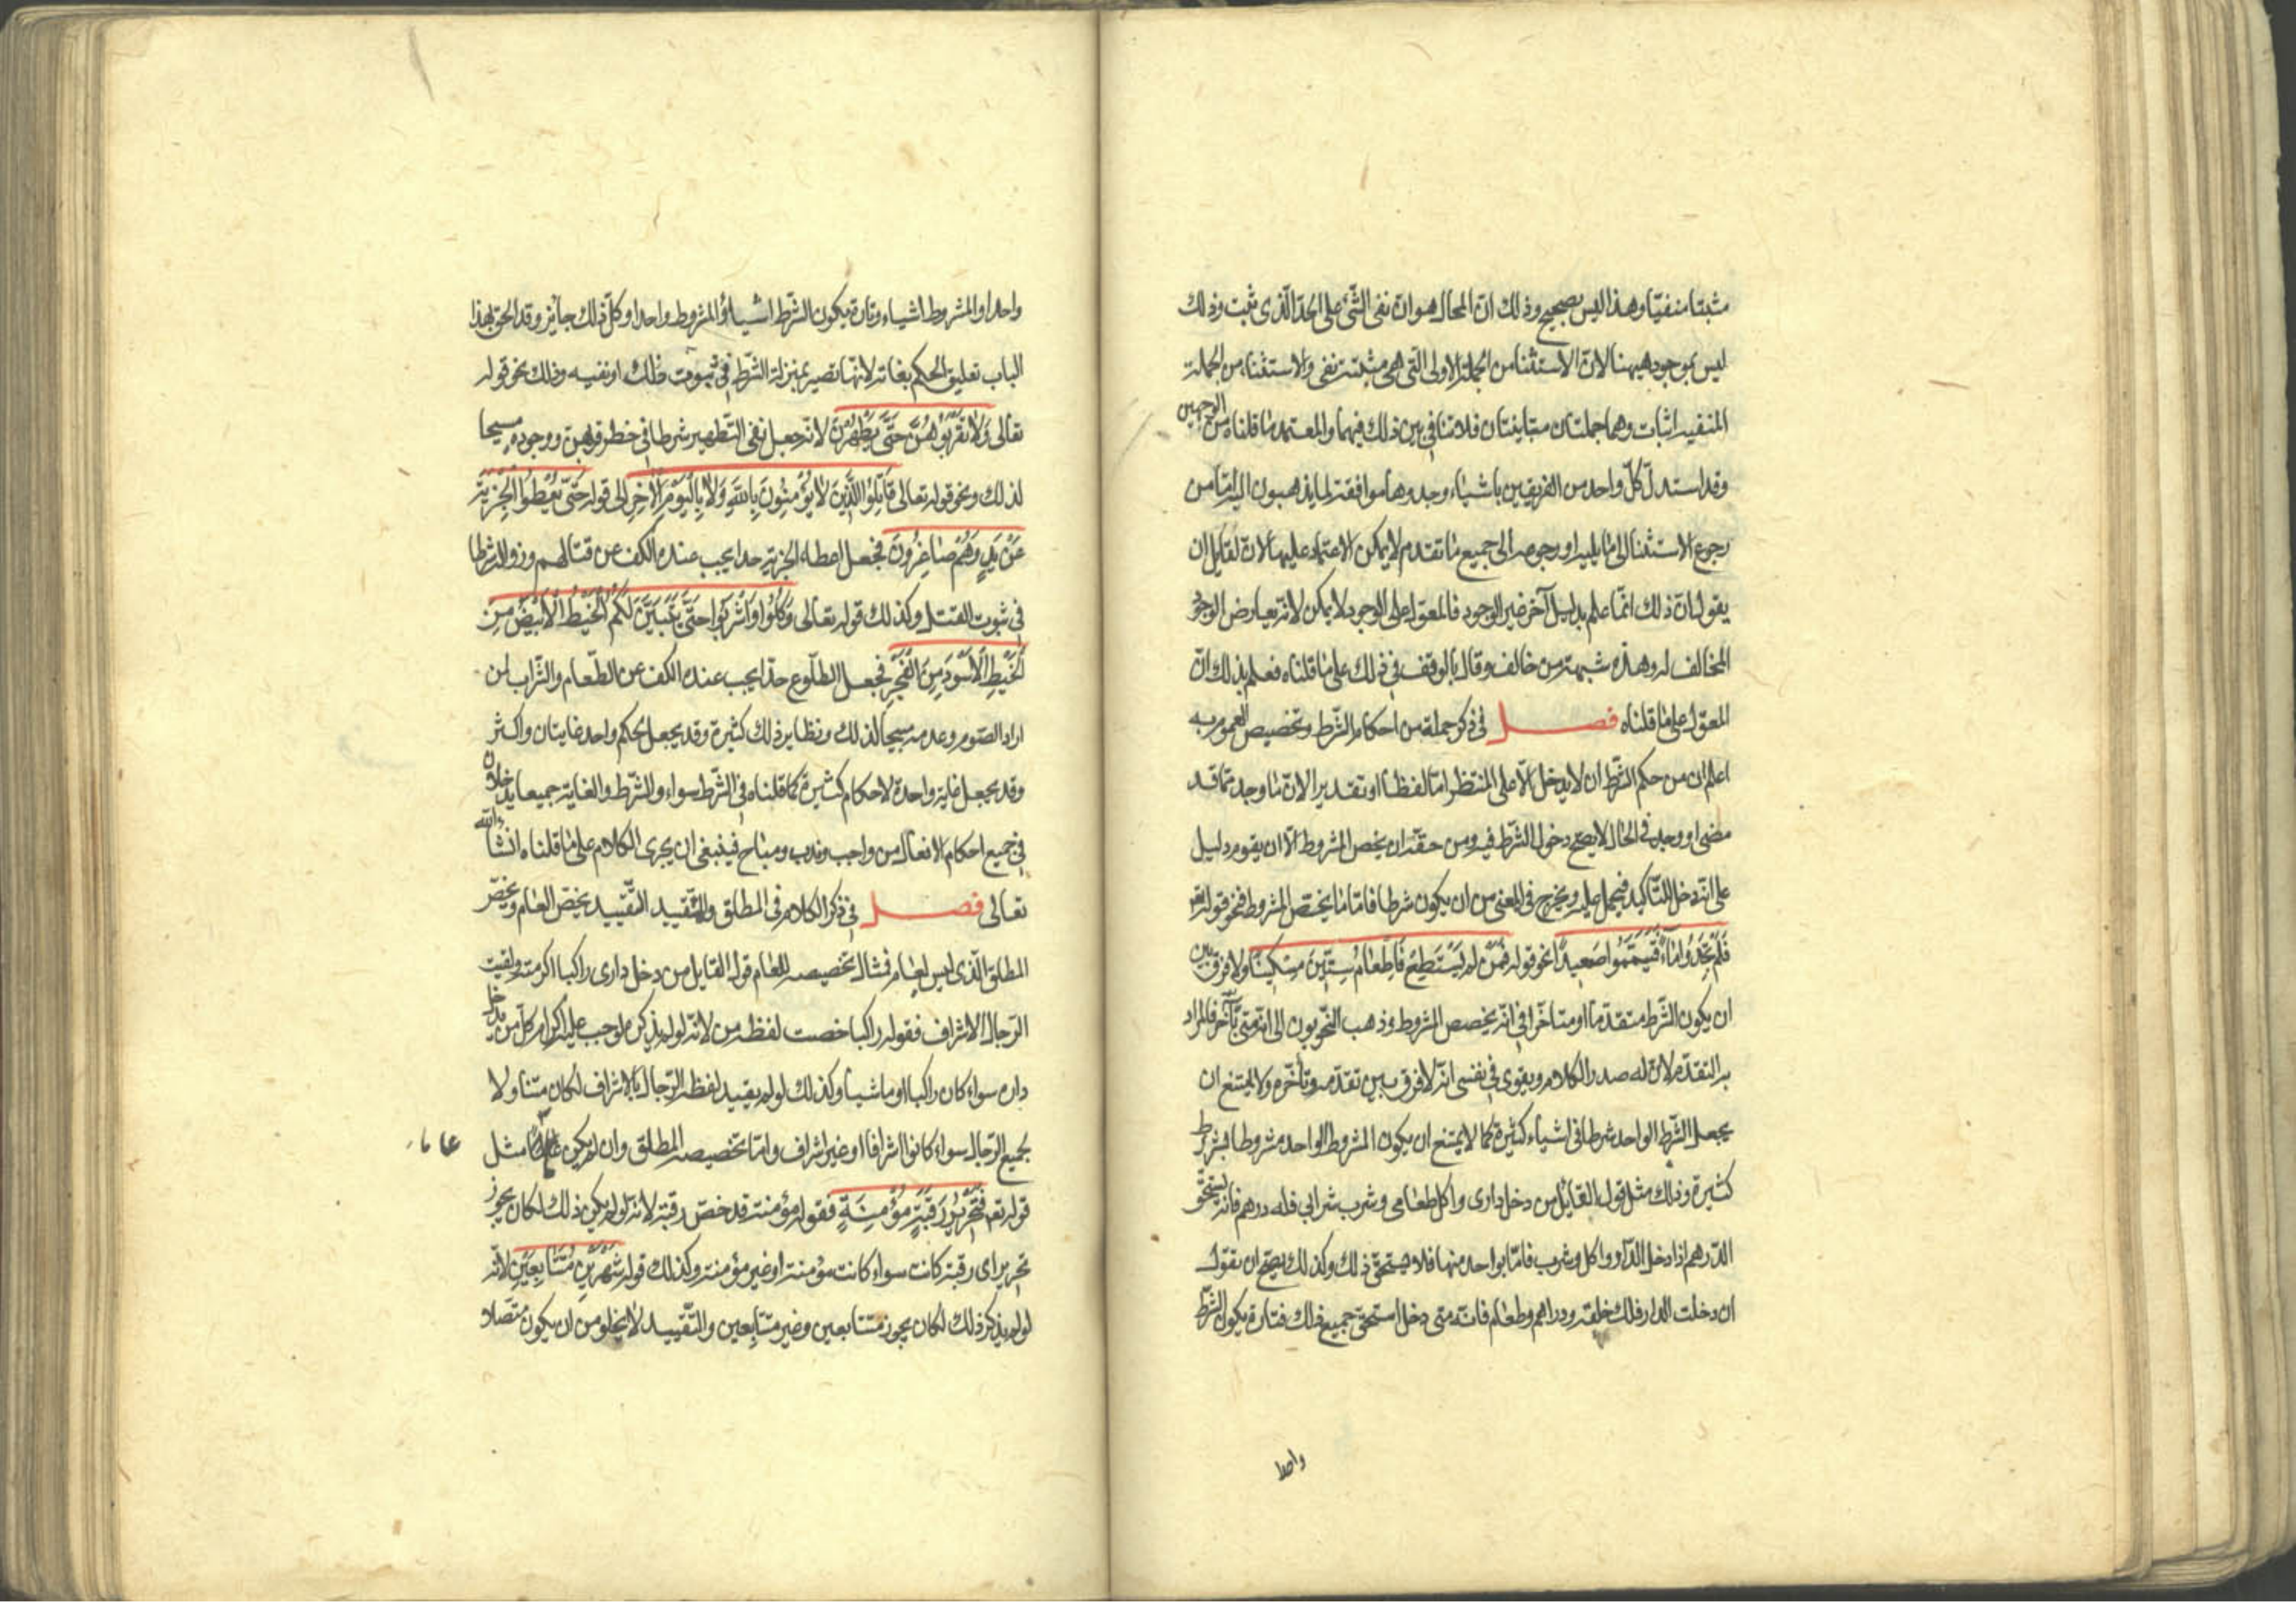 مثبتا منفيّا وهذا ليس بصحيح وذلك انّ المحال هو ان نفى الشّئ على الحدّ الّذى ثبت وذلك
ليس بموجود هيهنا لانّ الاستثنا من الجملة الاولى الّتى هى مثبتة نفى والاستثناء من الجملة
المنفيه اثبات وهما جملتان متغايرتان فلا تنافى بين ذلك فيهما والمعتمد ما قلناه من الوجهين
وقد استدلّ كلّ واحد من الفريقين باشياء وجدوها موافقة لما يذهبون اليه امّا من
رجوع الاستثنا الى ما يليه او رجوعه الى جميع ما تقدم لا يمكن الاعتماد عليها لانّ لقايل ان
يقول انّ ذلك انّما علم بدليل آخر غير الوجود فالمعوّل على الوجود لا يمكن لانّه يعارض الوجود
المخالف له وهذه شبهة من خالف وقال بالوقف فى ذلك على ما قلناه فعلم بذلك انّ
المعوّل على ما قلناه فصل فى ذكر جملة من احكام الشّرط وتخصيص العموم به
اعلم ان من حكم الشّرط ان لا يدخل الّا على المنتظر امّا لفظا او تقديرا لانّ ما وجد ممّا قد
مضى او وجد فى الحال لا يصحّ دخول الشّرط فيه ومن حقّه ان يخصّ المشروط الّا ان يقوم دليل
على انّه دخل للتّأكيد فيحمل عليه ويخرج فى المعنى من ان يكون شرطا فامّا ما يختصّ المشروط فنحو قوله تعم
فَلَمْ تَجِدُوا مَاءً فَتَيَمَّمُوا صَعِيدًا نحو قوله فَمَنْ لَمْ يَسْتَطِعْ فَاِطْعَامُ سِتِّينَ مِسْكِينًا ولا فرق بين
ان يكون الشّرط متقدّما او متأخّرا فى انّه يخصص المشروط وذهب النّحويون الى انّه متى تأخّر فالمراد
به التقدّم لانّ له صدر الكلام ويقوى فى نفسى انّه لا فرق بين تقدّمه وتأخّره ولا يمتنع ان
يجعل الشّرط الواحد شرطا فى اشياء كثيرة كما لا يمتنع ان يكون المشروط الواحد مشروطا بشروط
كثيرة وذلك مثل قول القائل من دخل دارى واكل طعامى وشرب شرابى فله درهم فانّه يستحقّ
الدّرهم اذا دخل الدّار واكل وشرب فامّا بواحد منها فلا يستحقّ ذلك وكذلك يصحّ ان يقول
ان دخلت الدار فلك خلعة ودراهم وطعام فانّه متى دخل استحق جميع ذلك فتارة يكون الشّرط
واحدا
واحدا والمشروط اشياء وتارة يكون الشّرط اشياء والمشروط واحدا وكلّ ذلك جايز وقد الحق بهذا
الباب تعليق الحكم بغاية لانّها تصير بمنزلة الشّرط فى ثبوت ذلك او نفيه وذلك نحو قوله
تعالى وَلَا تَقْرَبُوهُنَّ حَتَّى يَطْهُرْنَ لانّه جعل نفى التّطهير شرطا فى حظر قربهنّ ووجوده مبيحا
لذلك ونحو قوله تعالى قَاتِلُوا الَّذِينَ لَا يُؤْمِنُونَ بِاللَّهِ وَلَا بِالْيَوْمِ الْآخِرِ الى قوله حَتَّى يُعْطُوا الْجِزْيَةَ
عَنْ يَدٍ وَهُمْ صَاغِرُونَ فجعل اعطاء الجزية حدا يجب عنده الكف عن قتالهم وزواله شرطا
فى ثبوت القتل وكذلك قوله تعالى وَكُلُوا وَاشْرَبُوا حَتَّى يَتَبَيَّنَ لَكُمُ الْخَيْطُ الْأَبْيَضُ مِنَ
الْخَيْطِ الْأَسْوَدِ مِنَ الْفَجْرِ فجعل الطلّوع حدّا يجب عنده الكف عن الطّعام والشّراب لمن
اراد الصّوم وعدمه مبيحا لذلك ونظاير ذلك كثيرة وقد يجعل لحكم واحد غايتان واكثر
وقد يجعل غاية واحدة لاحكام كثيرة كما قلناه فى الشّرط سواء والشّرط والغاية جميعا يدخلان
فى جميع احكام الافعال من واجب وندب ومباح فينبغى ان يجرى الكلام على ما قلناه انشاء الله
تعالى فصل فى ذكر الكلام فى المطلق والمقيد التّقييد يخصّ العام ويخصّ
المطلق الّذى ليس بعام فمثال تخصيصه للعام قول القايل من دخل دارى راكبا اكرمته ولقيت
الرّجال الاشراف فقوله راكبا خصت لفظة من لانّه لو لم يذكره لوجب عليه اكرام كلّ من دخل
داره سواء كان راكبا او ماشيا وكذلك لو لم يقييد لفظ الرّجال بالاشراف لكان متناولا
لجميع الرّجال سواء كانوا اشرافا او غير اشراف وامّا تخصيصه المطلق وان لم يكن مثل
قوله تعم فَتَحْرِيرُ رَقَبَةٍ مُؤْمِنَةٍ فقوله مؤمنة قد خصّ رقبة لانّه لو لم يكن ذلك لكان يجوز
تحرير اى رقبة كانت سواء كانت مؤمنة او غير مؤمنة وكذلك قوله شَهْرَيْنِ مُتَتَابِعَيْنِ لانّه
لو لم يذكر ذلك لكان يجوز متتابعين وغير متتابعين والتّقييد لا يخلو من ان يكون متّصلا